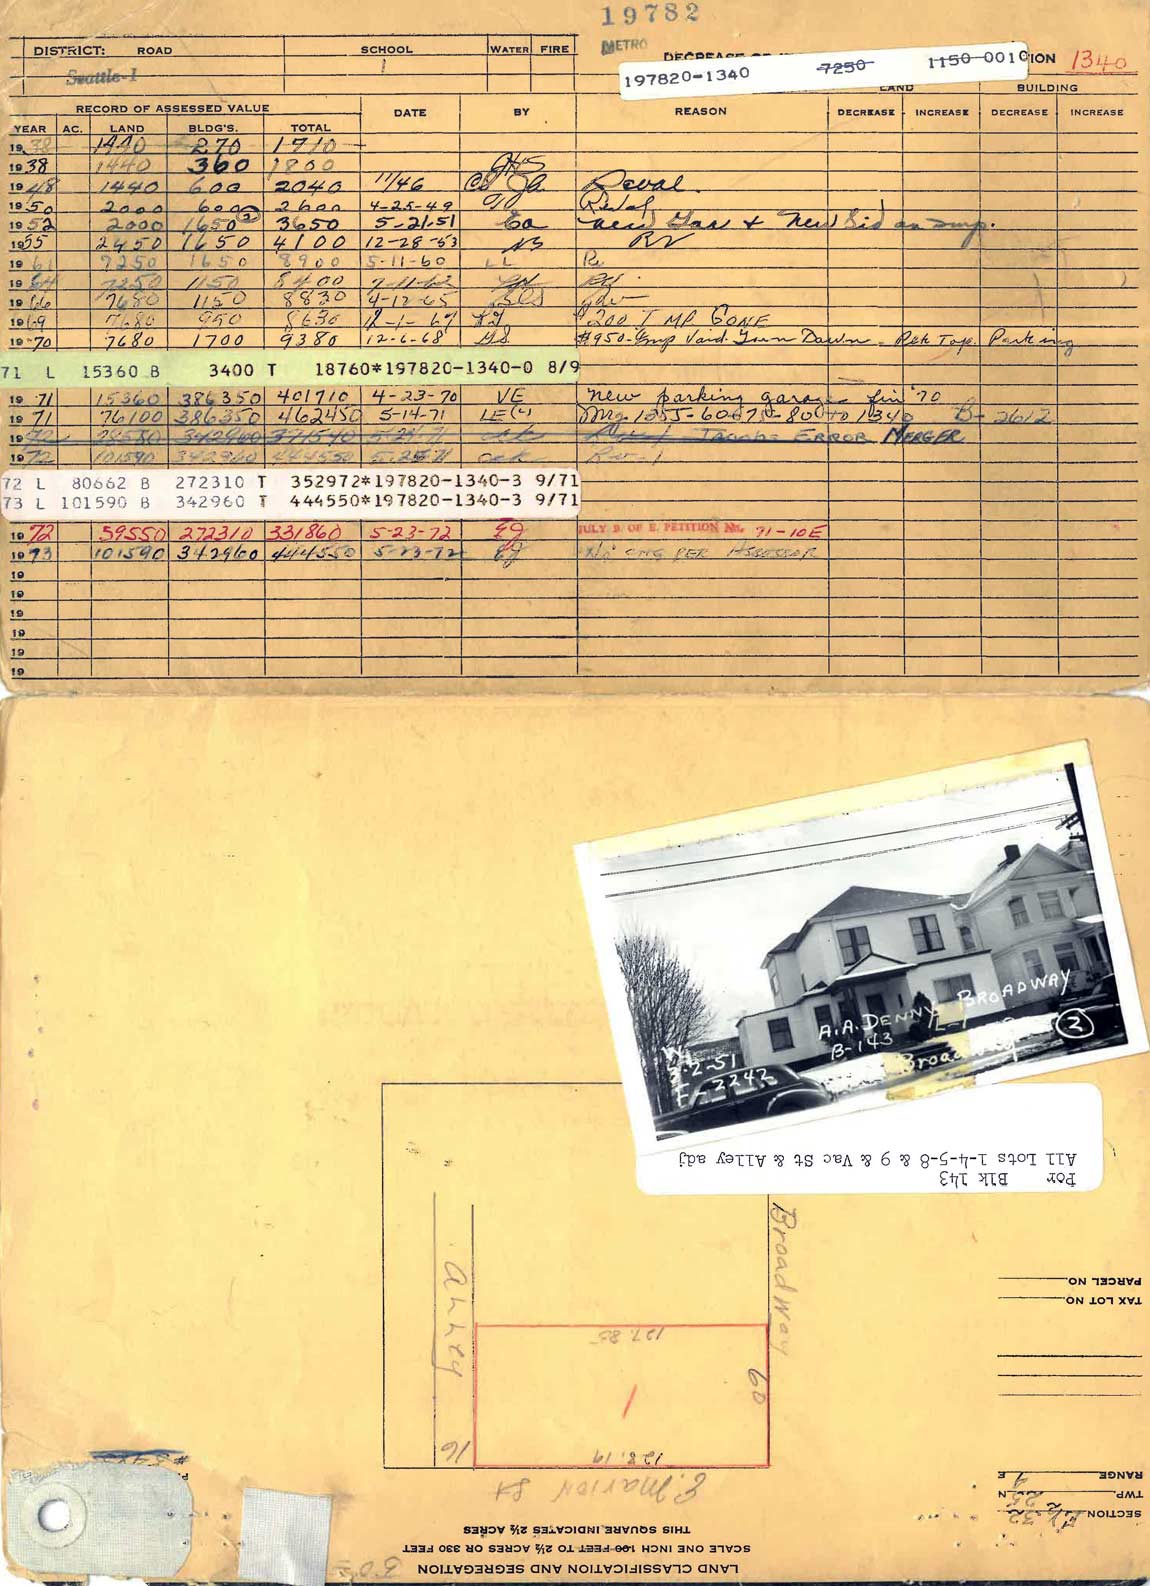 19782
METRO
DISTRICT: ROAD SCHOOL WATER FIRE
Seattle-1 1
197820-1340 7250 1150 0010 ION 1340
LAND BUILDING
RECORD OF ASSESSED VALUE DATE BY REASON DECREASE INCREASE DECREASE INCREASE
YEAR AC. LAND BLDG'S. TOTAL
1938 1440 270 1710
1938 1440 360 1800
1948 1440 600 2040 11/46 Reval.
1950 2000 600 2600 4-25-49
1952 2000 1650 3650 5-21-51 Ea new Gar & New Sid on Imp.
1955 2450 1650 4100 12-28-53 RV
1961 7250 1650 8900 5-11-60 LL Rv
1964 7250 1150 8400 7-11-63
1966 7680 1150 8830 4-12-65
1969 7680 950 8630 12-1-67 $200 IMP. GONE
1970 7680 1700 9380 12-6-68 #950-Imp Void. Torn Down - Blk Top. Parking
71 L 15360 B 3400 T 18760*197820-1340-0 8/9
1971 15360 386350 401710 4-23-70 VE New parking garage fin '70
1971 76100 386350 462450 5-14-71 LE(4) Mrg 1355-60-670-80 to 1340 B-2612
1972 342960 5-24-71 ERROR MERGER
1972 101590 342960 444550 5-25-71 Rv-1
72 L 80662 B 272310 T 352972*197820-1340-3 9/71
73 L 101590 B 342960 T 444550*197820-1340-3 9/71
1972 59550 272310 331860 5-23-72 EJ JULY B. OF E. PETITION No. 71-10E
1973 101590 342960 444550 5-23-72 EJ No CHG PER ASSESSOR
19
19
19
19
19
19
A.A. DENNYS BROADWAY
L-1
B-143
Broadway
2
3-2-51
F-2242
Por Blk 143
All Lots 1-4-5-8 & 9 & Vac St & Alley adj
Broadway
PARCEL NO.
TAX LOT NO.
Alley
127.85
60
1
128.19
16
E. Marion St
RANGE 4 E
TWP. 25 N
SECTION 32
THIS SQUARE INDICATES 2½ ACRES
SCALE ONE INCH 100 FEET TO 2½ ACRES OR 330 FEET
LAND CLASSIFICATION AND SEGREGATION